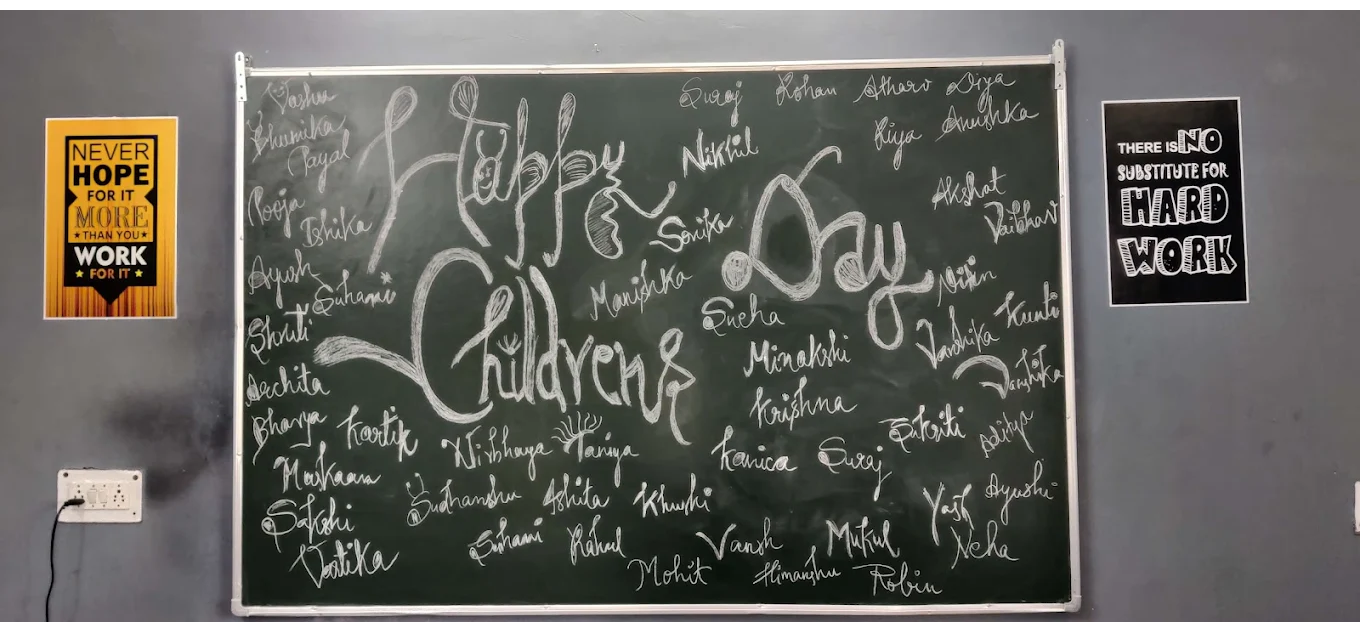 NEVER
HOPE
FOR IT
MORE
THAN YOU
WORK
FOR IT
Happy
Children's
Day
Bhumika
Payal
Pooja
Ishika
Ayush
Suhani
Shruti
Archita
Bhavya
Kartik
Muskaan
Sakshi
Vartika
Nirbhaya
Taniya
Sudhanshu
Ishita
Khushi
Suhani
Rahul
Mohit
Vansh
Himanshu
Mukul
Robin
Suraj
Rohan
Atharv
Diya
Nikhil
Riya
Anushka
Sonika
Akshat
Vaibhav
Manishka
Sneha
Nitin
Minakshi
Vanshika
Kunti
Krishna
Vanshika
Kanica
Suraj
Sukriti
Aditya
Yash
Ayushi
Neha
THERE IS NO
SUBSTITUTE FOR
HARD
WORK